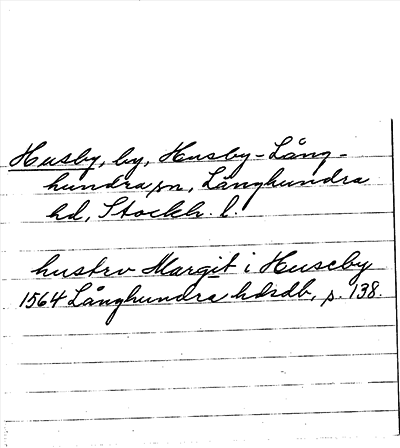 Husby, by, Husby-Lång-
hundra sn, Långhundra
hd, Stockh. l.
hustrv Margit i Huseby
1564 Långhundra hdrdb, s. 138.